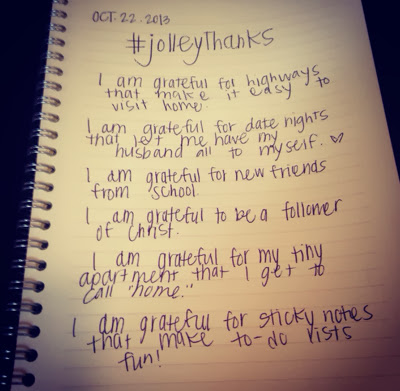 OCT. 22. 2013
#jolleyThanks
I am grateful for highways
that make it easy to
visit home.
I am grateful for date nights
that let me have my
husband all to myself. ♡
I am grateful for new friends
from school.
I am grateful to be a follower
of Christ.
I am grateful for my tiny
apartment that I get to
call "home."
I am grateful for sticky notes
that make to-do lists
fun!